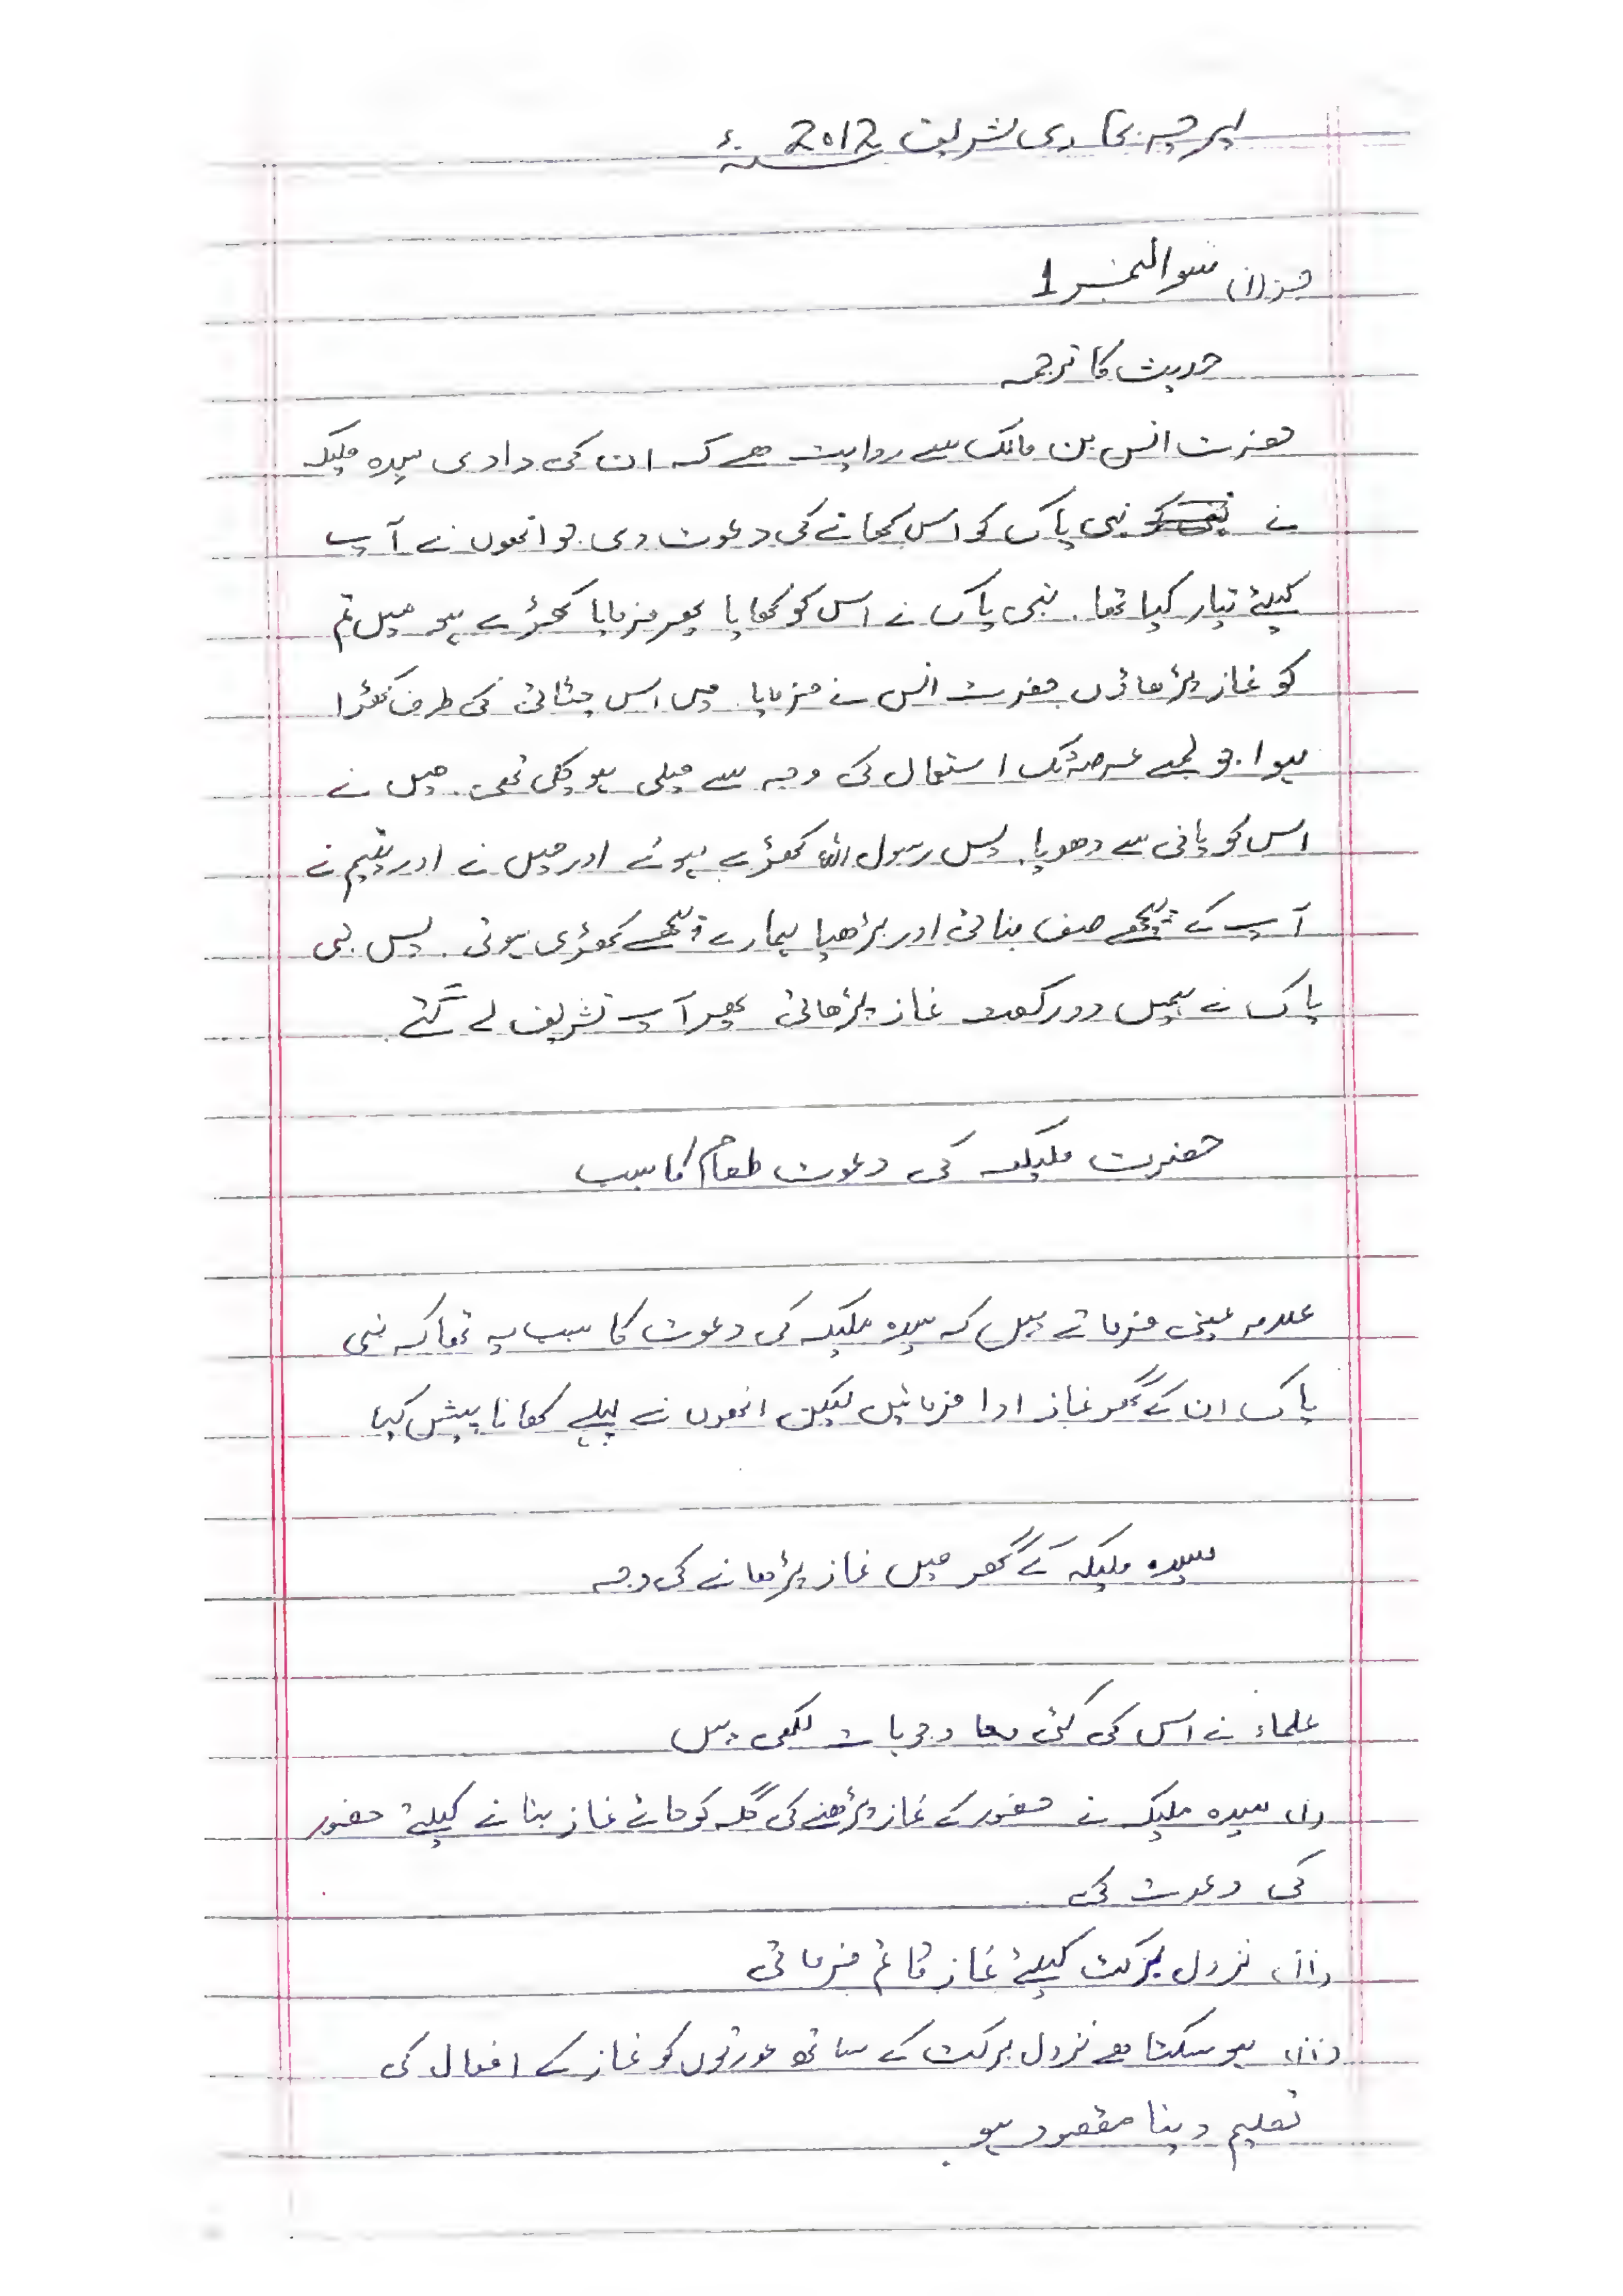 پرچہ بخاری شریف 2012ء
جز (i) سوال نمبر 1
حدیث کا ترجمہ
حضرت انس بن مالک سے روایت ھے کہ ان کی دادی سیدہ ملیکہ
نے نبی پاک کو اس کھانے کی دعوت دی جو انھوں نے آپ
کیلئے تیار کیا تھا۔ نبی پاک نے اس کو کھایا پھر فرمایا کھڑے ہو میں تم
کو نماز پڑھاؤں حضرت انس نے فرمایا میں اس چٹائی کی طرف کھڑا
ہوا جو لمبے عرصہ تک استعمال کی وجہ سے میلی ہو چکی تھی۔ میں نے
اس کو پانی سے دھویا۔ پس رسول اللہ کھڑے ہوئے اور میں نے اور یتیم نے
آپ کے پیچھے صف بنائی اور بڑھیا ہمارے پیچھے کھڑی ہوئی۔ پس نبی
پاک نے ہمیں دو رکعت نماز پڑھائی پھر آپ تشریف لے گئے۔
حضرت ملیکہ کی دعوت طعام کا سبب
علامہ عینی فرماتے ہیں کہ سیدہ ملیکہ کی دعوت کا سبب یہ تھا کہ نبی
پاک ان کے گھر نماز ادا فرمائیں لیکن انھوں نے پہلے کھانا پیش کیا
سیدہ ملیکہ کے گھر میں نماز پڑھانے کی وجہ
علماء نے اس کی کئی وجوہات لکھی ہیں
(i) سیدہ ملیکہ نے حضور کے نماز پڑھنے کی جگہ کو جائے نماز بنانے کیلئے حضور
کی دعوت کی
(ii) نزول برکت کیلئے نماز قائم فرمائی
(iii) ہو سکتا ھے نزول برکت کے ساتھ عورتوں کو نماز کے افعال کی
تعلیم دینا مقصود ہو۔